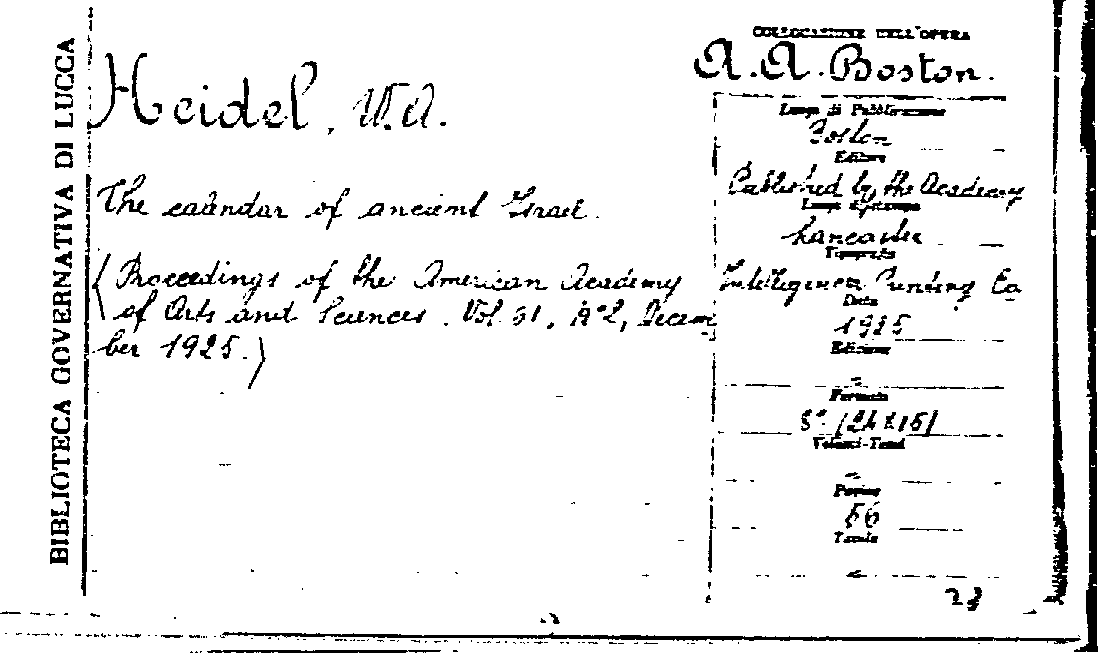 BIBLIOTECA GOVERNATIVA DI LUCCA
Heidel, W.A.
The calendar of ancient Israel.
(Proceedings of the American Academy
of Arts and Sciences. Vol. 61, N° 2, Decem
ber 1925.)
COLLOCAZIONE DELL'OPERA
A.A. Boston.
Luogo di Pubblicazione
Boston
Editore
Published by the Academy
Luogo di stampa
Lancaster
Tipografia
Intelligencer Printing Co
Data
1925
Edizione
Formato
8° (24x15)
Volumi-Tomi
Pagine
56
Tavole